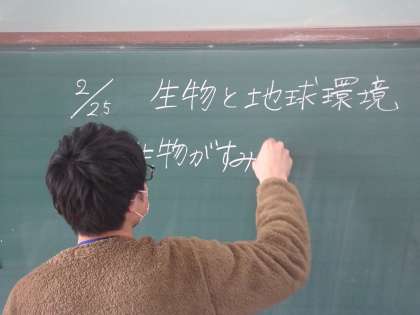 2/25 生物と地球環境
生物がすみ